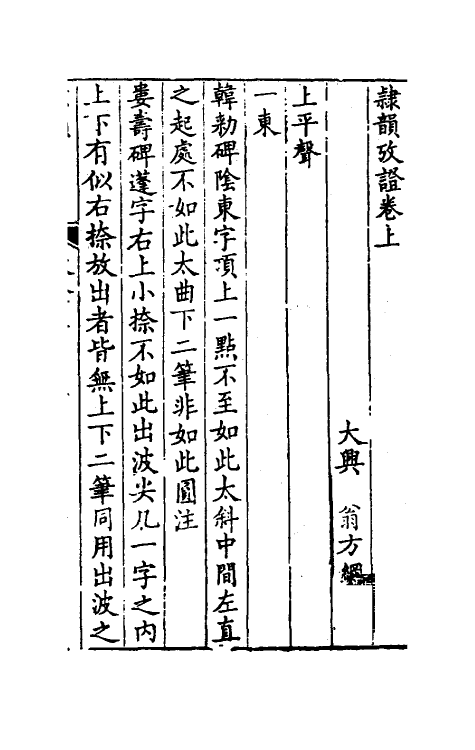 隷韻攷證卷上
大興 翁方綱
上平聲
一東
韓勑碑陰東字頂上一點不至如此太斜中間左直
之起處不如此太曲下二筆非如此圓注
婁壽碑蓬字右上小捺不如此出波尖凡一字之內
上下有似右捺放出者皆無上下二筆同用出波之